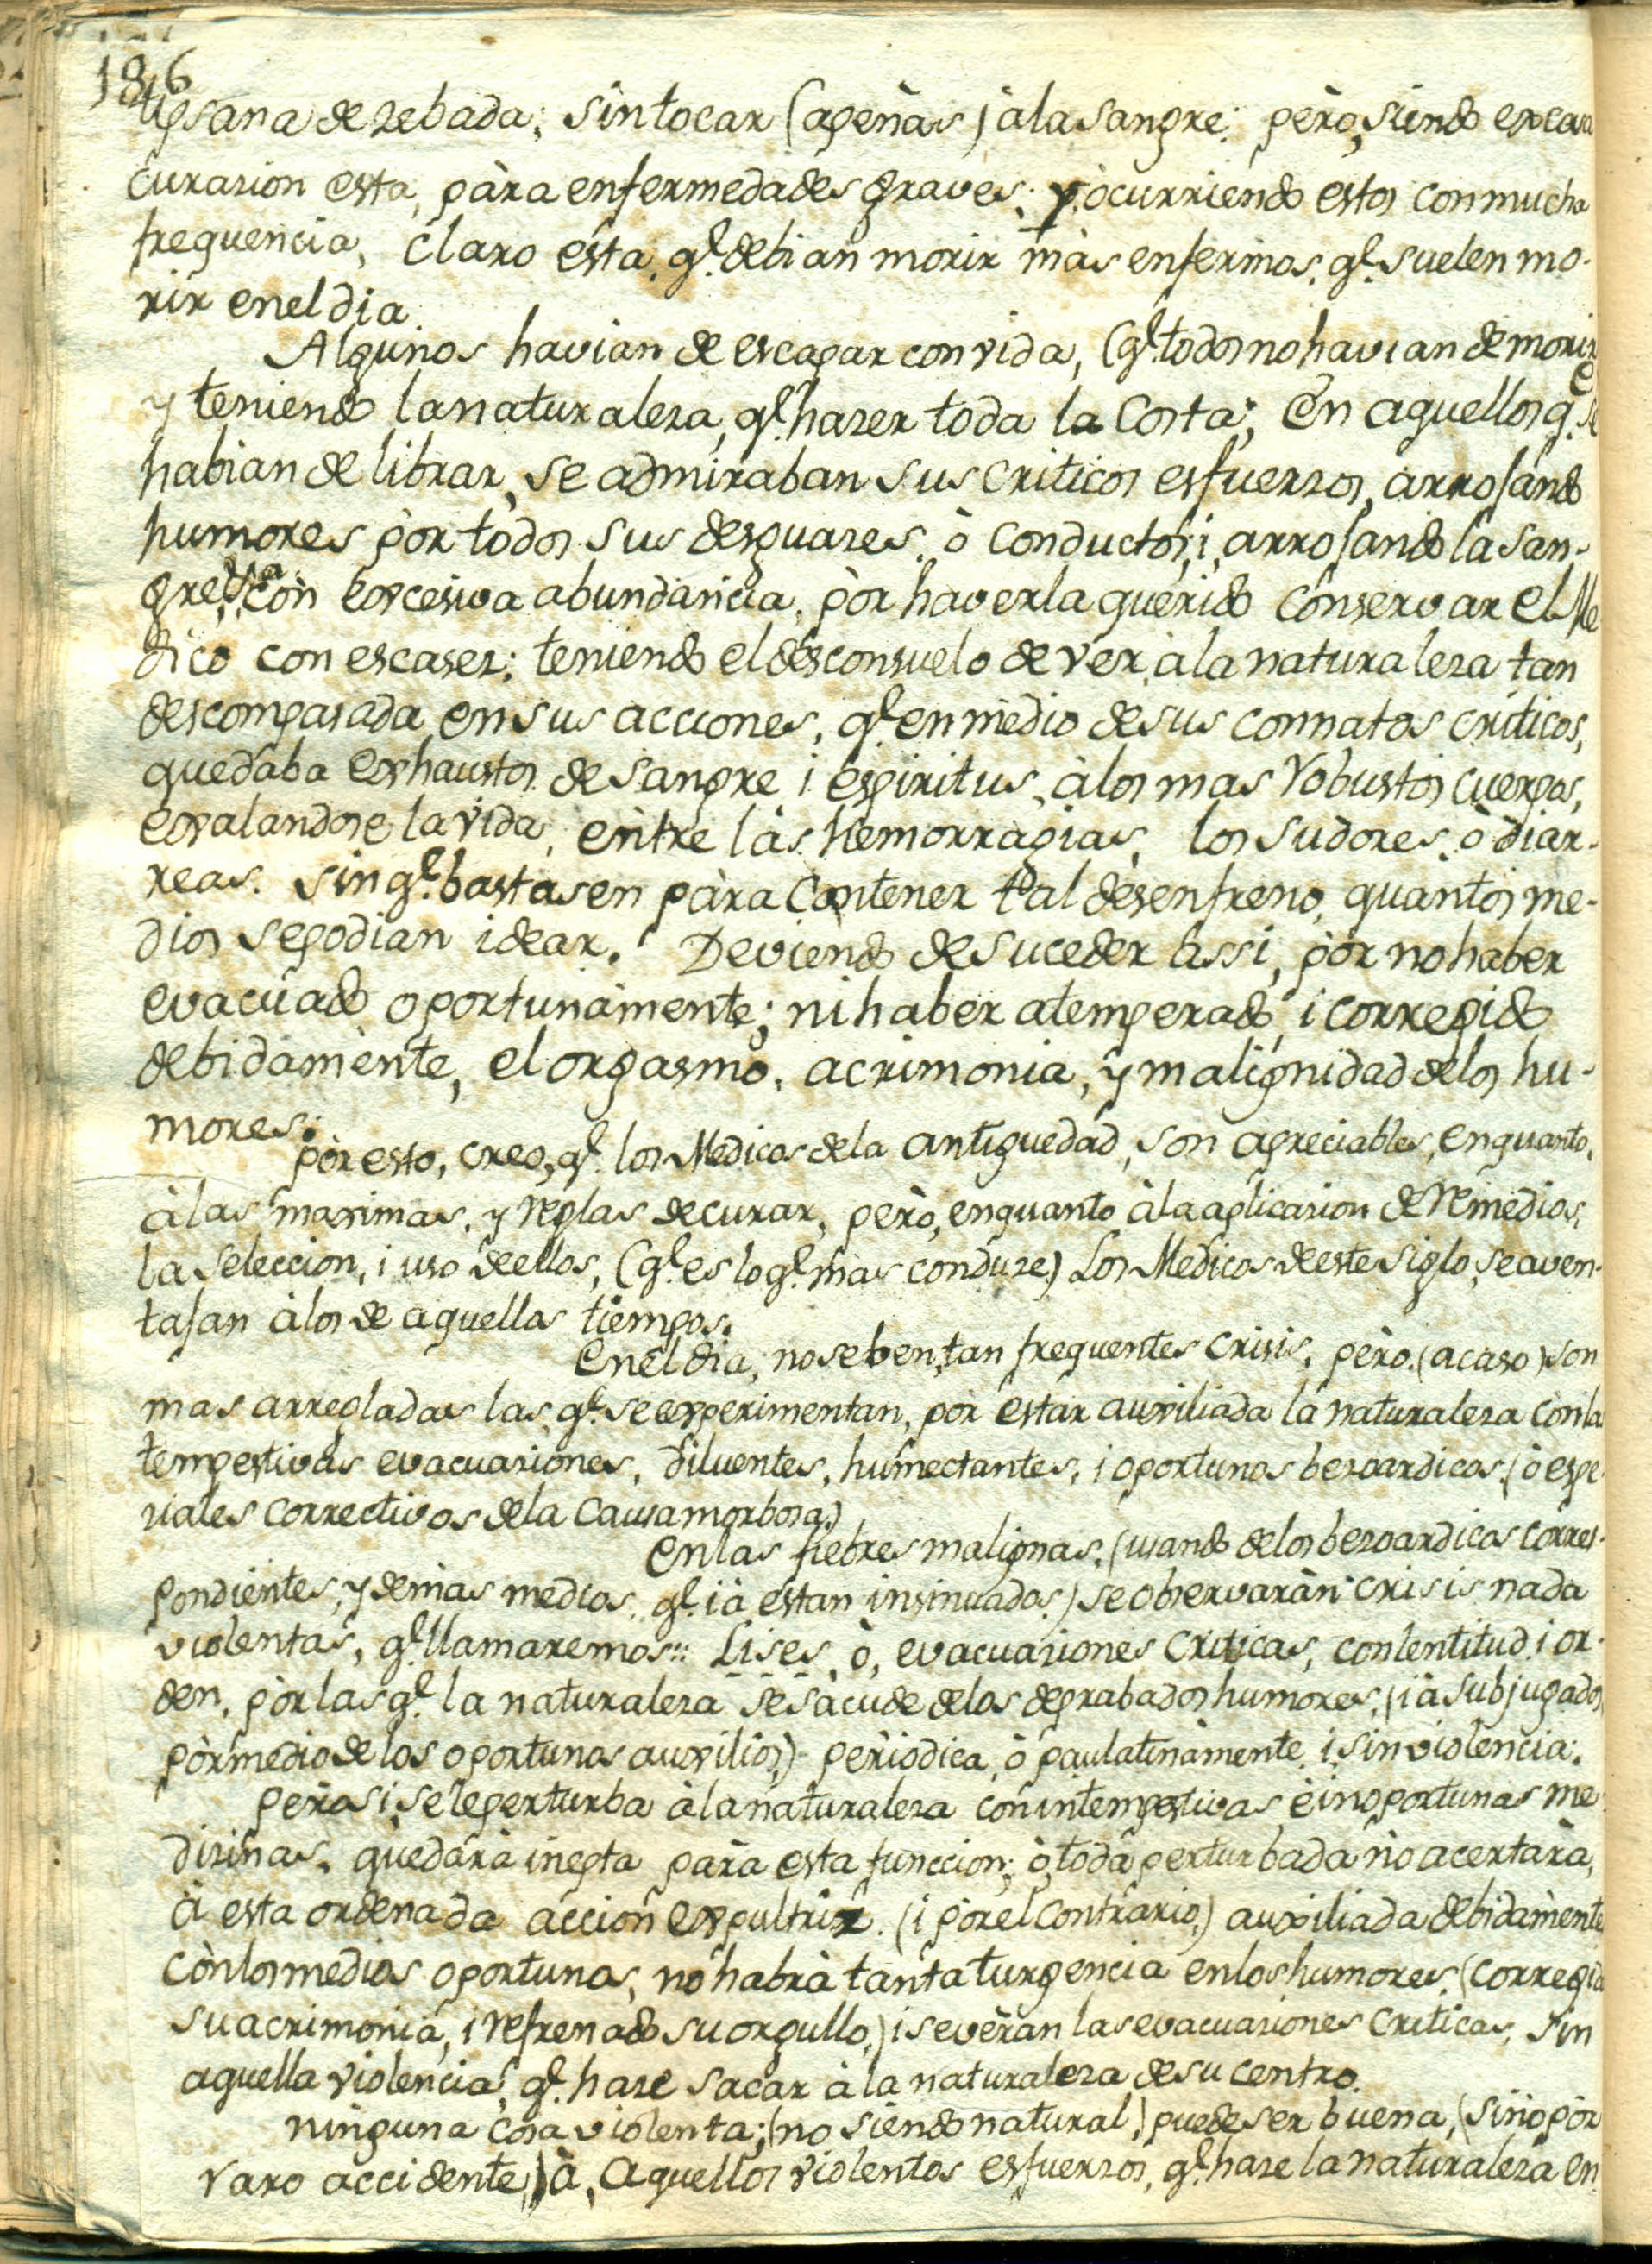 186
tipsana de zebada; sin tocar (apènas) à la sangre: pèro, siendo escasa
curazion esta, pàra enfermedades graves; y ocurriendo estos con mucha
frequencia, claro està, q.e debian morir màs enfermos, q.e suelen mo-
rir en el dia.
Algunos havian de escapar con vida, (q.e todos no havian de morir
y teniendo la naturaleza, q.e hazer toda la Costa; En aquellos q.e se
habian de librar, se admiraban sus criticos esfuerzos, arrojando
humores pòr todos sus desguazes, ò conductos; i, arrojando la san-
gre, ya con excesiva abundancia, pòr haverla querido conservar el Me
dico con escasez; teniendo el desconsuelo de vèr, à la naturaleza tan
descompasada en sus acciones, q.e en mèdio de sus connatos criticos,
quedaba exhaustos de sangre i espiritus, à los mas robustos cuerpos,
exalandose la vida, entre làs hemorragias, los sudores, ò diar-
reas. sin q.e bastasen pàra contener tal desenfreno, quantos me-
dios se podian idear. Deviendo de suceder assi, pòr no haber
evacuado oportunamente; ni haber atemperado, i corregido
debidamènte, el orgasmo, acrimonia, y malignidad de los hu-
mores.
pòr esto, creo, q.e los Medicos de la antiguedad, son apreciables, en quanto,
à las maximas, y reglas de curar, pèro, en quanto à la aplicazion de remedios,
la seleccion, i uso de ellos, (q.e es lo q.e mas conduze) Los Medicos de este siglo, se aven-
tajan à los de aquellos tiempos.
En el dia, no se ben, tan frequentes crisis, pèro (acaso) son
mas arregladas las q.e se experimentan, por estar auxiliada la naturaleza con la
tempestivas evacuaziones, diluentes, humectantes, i oportunos bezoardicos, (ò espe-
ziales correctivos de la Causa morbosa.)
En las fiebres malignas, (usando de los bezoardicos corres-
pondientes, y demàs medios, q.e ià estan insinuados) se observaràn crisis nada
violentas, q.e llamaremos:: Lises, ò, evacuaziones criticas, con lentitud, i or-
den, pòr las q.e la naturaleza se sacude de los deprabados humores, (ià subjugados
pòr medio de los oportunos auxilios,) pèriodica, ò paulatinàmente, i sin violencia.
pèro si se le perturba à la naturaleza con intempestivas, è inoportunas me
dizinas, quedarà inepta pàra esta funccion; ò, toda perturbada no acertàra,
à esta ordenada accion expultriz. (i pòr el contràrio,) auxiliada debidamènte
còn los medios oportunos, no habrà tanta turgencia en los humores, (corregida
su acrimonia, i refrenado su orgullo,) i se veràn las evacuaziones criticas, sin
aquella violencia, q.e haze sacar à la naturaleza de su centro.
ninguna cosa violenta; (no siendo natural) puede ser buena, (sino pòr
raro accidente) à, aquellos violentos esfuerzos, q.e haze la naturaleza en